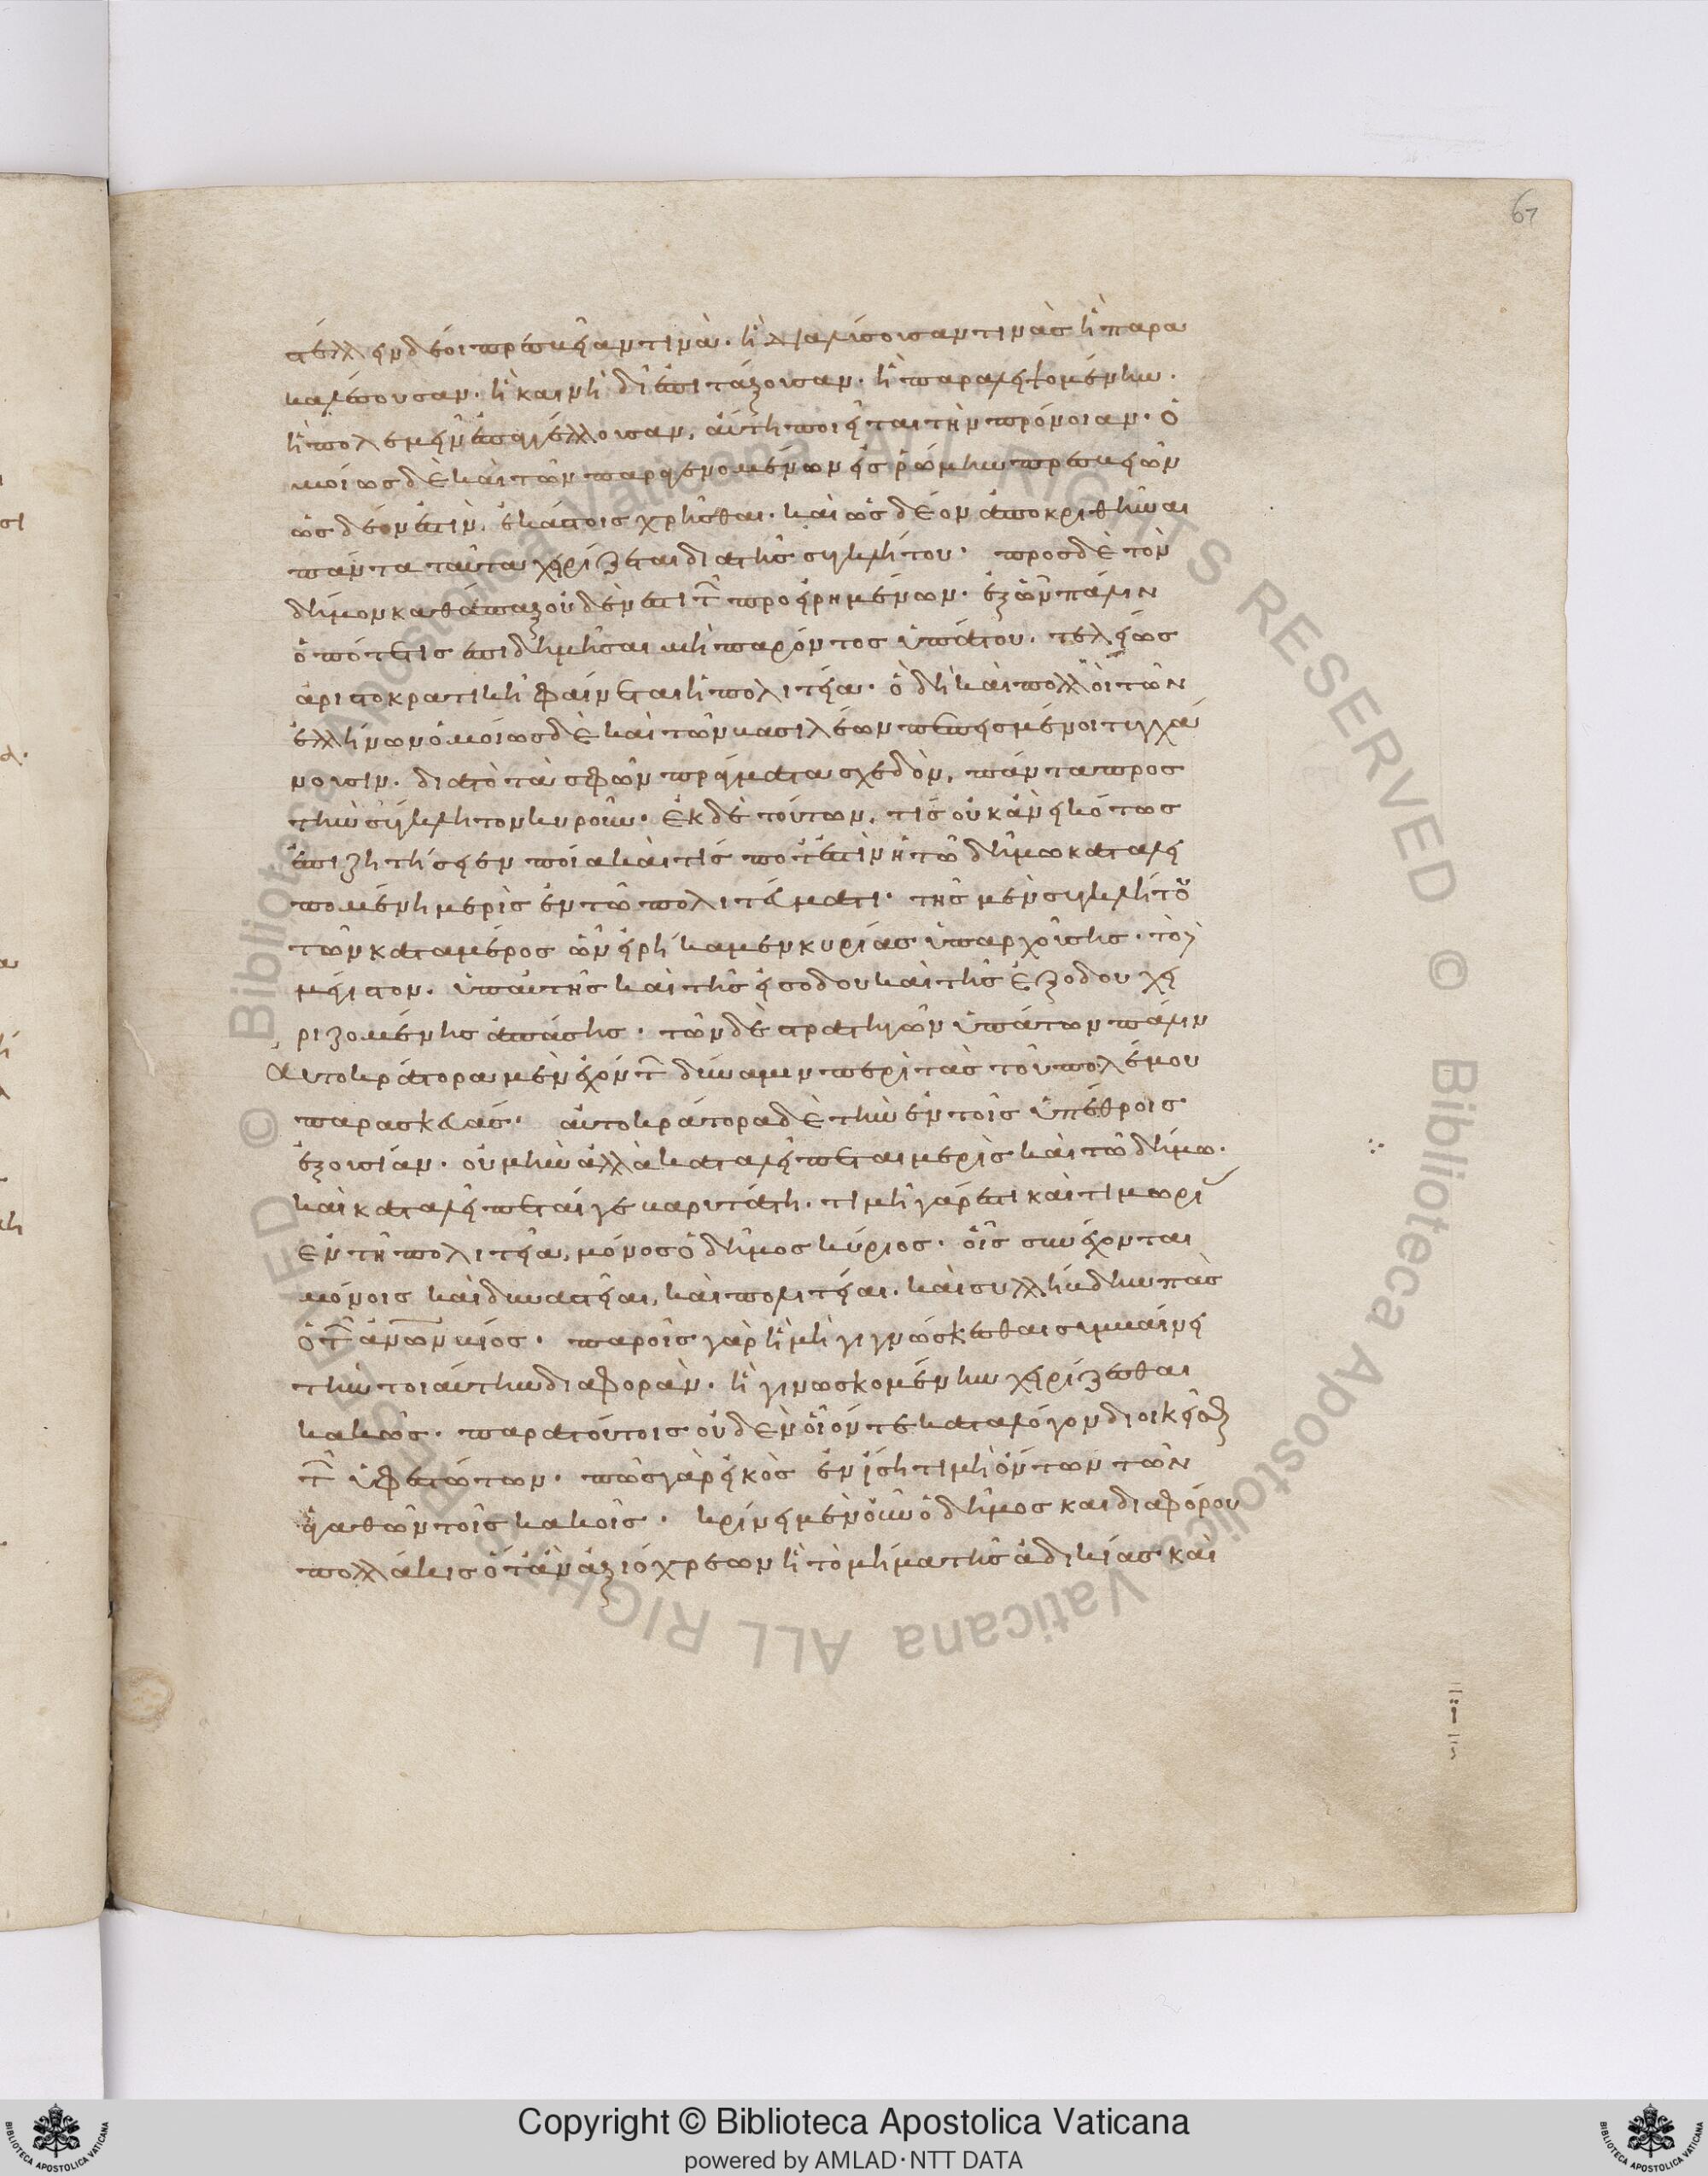 67
στέλλειν δέοι πρεσβείαν τινὰ. ἢ διαλύσουσαν τινὰς ἢ παρα
καλέσουσαν. ἢ καὶ νὴ δί' ἐπιτάξουσαν. ἢ παραληψομένην.
ἢ πόλεμον ἐπαγγέλλουσαν, αὕτη ποιεῖται τὴν πρόνοιαν. ὁ
μοίως δὲ καὶ τῶν παραγενομένων εἰς ῥώμην πρεσβειῶν
ὡς δέον ἐστὶν, ἑκάστοις χρῆσθαι. καὶ ὡς δέον ἀποκριθῆναι
πάντα ταῦτα χειρίζεται διὰ τῆς συγκλήτου. πρὸς δὲ τὸν
δῆμον καθάπαξ οὐδέν ἐστι τῶν προειρημένων. ἐξ ὧν πάλιν
ὁπότε τις ἐπιδημῆσαι μὴ παρόντος ὑπάτου. τελείως
ἀριστοκρατικὴ φαίνεται ἡ πολιτεία. ὃ δὴ καὶ πολλοὶ τῶν
ἑλλήνων ὁμοίως δὲ καὶ τῶν βασιλέων πεπεισμένοι τυγχά
νουσιν. διὰ τὸ τὰ σφῶν πράγματα σχεδὸν, πάντα πρὸς
τὴν σύγκλητον κυροῦν. ἐκ δὲ τούτων, τίς οὐκ ἂν εἰκότως
ἐπιζητήσειεν ποία καὶ τίς ποτ' ἐστὶν ἡ τῷ δήμῳ καταλει
πομένη μερὶς ἐν τῷ πολιτεύματι. τῆς μὲν συγκλήτου
τῶν κατὰ μέρος ὧν εἰρήκαμεν κυρίας ὑπαρχούσης. τὸ δὲ
μέγιστον. ὑπ' αὐτῆς καὶ τῆς εἰσόδου καὶ τῆς ἐξόδου χει
ριζομένης ἁπάσης. τῶν δὲ στρατηγῶν ὑπάτων πάλιν
αὐτοκράτορα μὲν ἐχόντων δύναμιν περὶ τὰς τοῦ πολέμου
παρασκευάς. αὐτοκράτορα δὲ τὴν ἐν τοῖς ὑπαίθροις
ἐξουσίαν. οὐ μὴν ἀλλὰ καταλείπεται μερὶς καὶ τῷ δήμῳ.
καὶ καταλείπεταί γε βαρυτάτη. τιμῆς γάρ ἐστι καὶ τιμωρίας
ἐν τῇ πολιτείᾳ, μόνος ὁ δῆμος κύριος. οἷς συνέχονται
μόνοις καὶ δυναστεῖαι, καὶ πολιτεῖαι. καὶ συλλήβδην πᾶς
ὁ τῶν ἀνων βίος. παρ' οἷς γὰρ ἢ μὴ γιγνώσκεσθαι συμβαίνει
τὴν τοιαύτην διαφορὰν. ἢ γινωσκομένην χειρίζεσθαι
κακῶς. παρὰ τούτοις οὐδὲν οἷόν τε κατὰ λόγον διοικεῖσθαι
τῶν ὑφεστώτων. πῶς γὰρ εἰκὸς ἐν ἴσῃ τιμῇ ὄντων τῶν
ἀγαθῶν τοῖς κακοῖς. κρίνει μὲν οὖν ὁ δῆμος καὶ διαφόρου
πολλάκις ὅταν ἀξιόχρεων ᾖ τὸ τίμημα τῆς ἀδικίας καὶ
© Biblioteca Apostolica Vaticana ALL RIGHTS RESERVED © Biblioteca Apostolica Vaticana ALL RIGHTS RESERVED
Copyright © Biblioteca Apostolica Vaticana
powered by AMLAD·NTT DATA
BIBLIOTECA APOSTOLICA VATICANA
BIBLIOTECA APOSTOLICA VATICANA